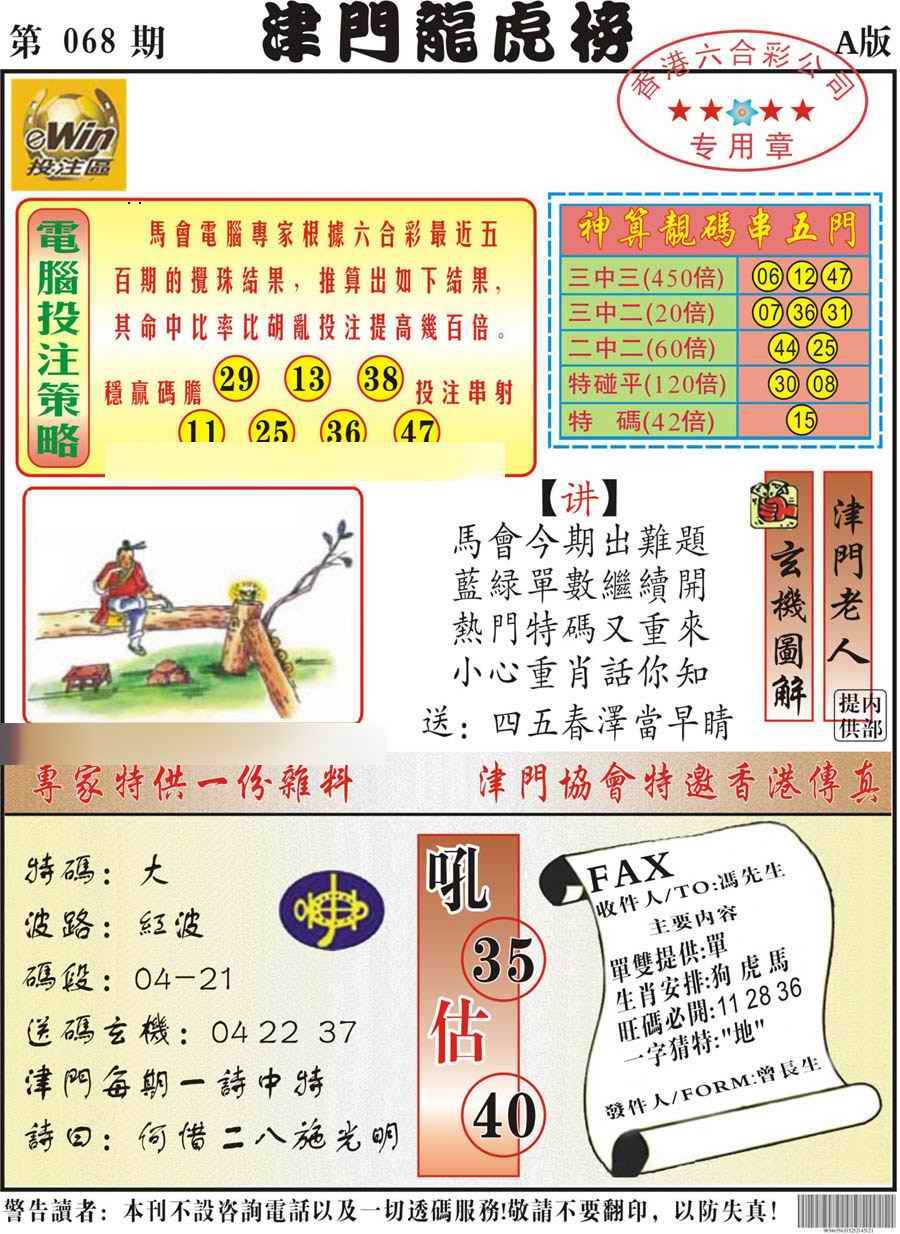 第 068 期
津門龍虎榜
A版
香港六合彩公司
专用章
eWin
投注區
電腦投注策略
馬會電腦專家根據六合彩最近五
百期的攪珠結果，推算出如下結果，
其命中比率比胡亂投注提高幾百倍。
穩贏碼膽 29 13 38 投注串射
11 25 36 47
神算靚碼串五門
三中三(450倍) 06 12 47
三中二(20倍) 07 36 31
二中二(60倍) 44 25
特碰平(120倍) 30 08
特 碼(42倍) 15
【讲】
馬會今期出難題
藍綠單數繼續開
熱門特碼又重來
小心重肖話你知
送：四五春澤當早晴
玄機圖解
津門老人
提供
内部
專家特供一份雜料
津門協會特邀香港傳真
特碼：大
波路：紅波
碼段：04-21
送碼玄機：04 22 37
津門每期一詩中特
詩曰：何借二八施光明
吼
35
估
40
FAX
收件人/TO:馮先生
主要内容
單雙提供:單
生肖安排:狗 虎 馬
旺碼必開:11 28 36
一字猜特:"地"
發件人/FORM:曾長生
警告讀者：本刊不設咨詢電話以及一切透碼服務!敬請不要翻印，以防失真！